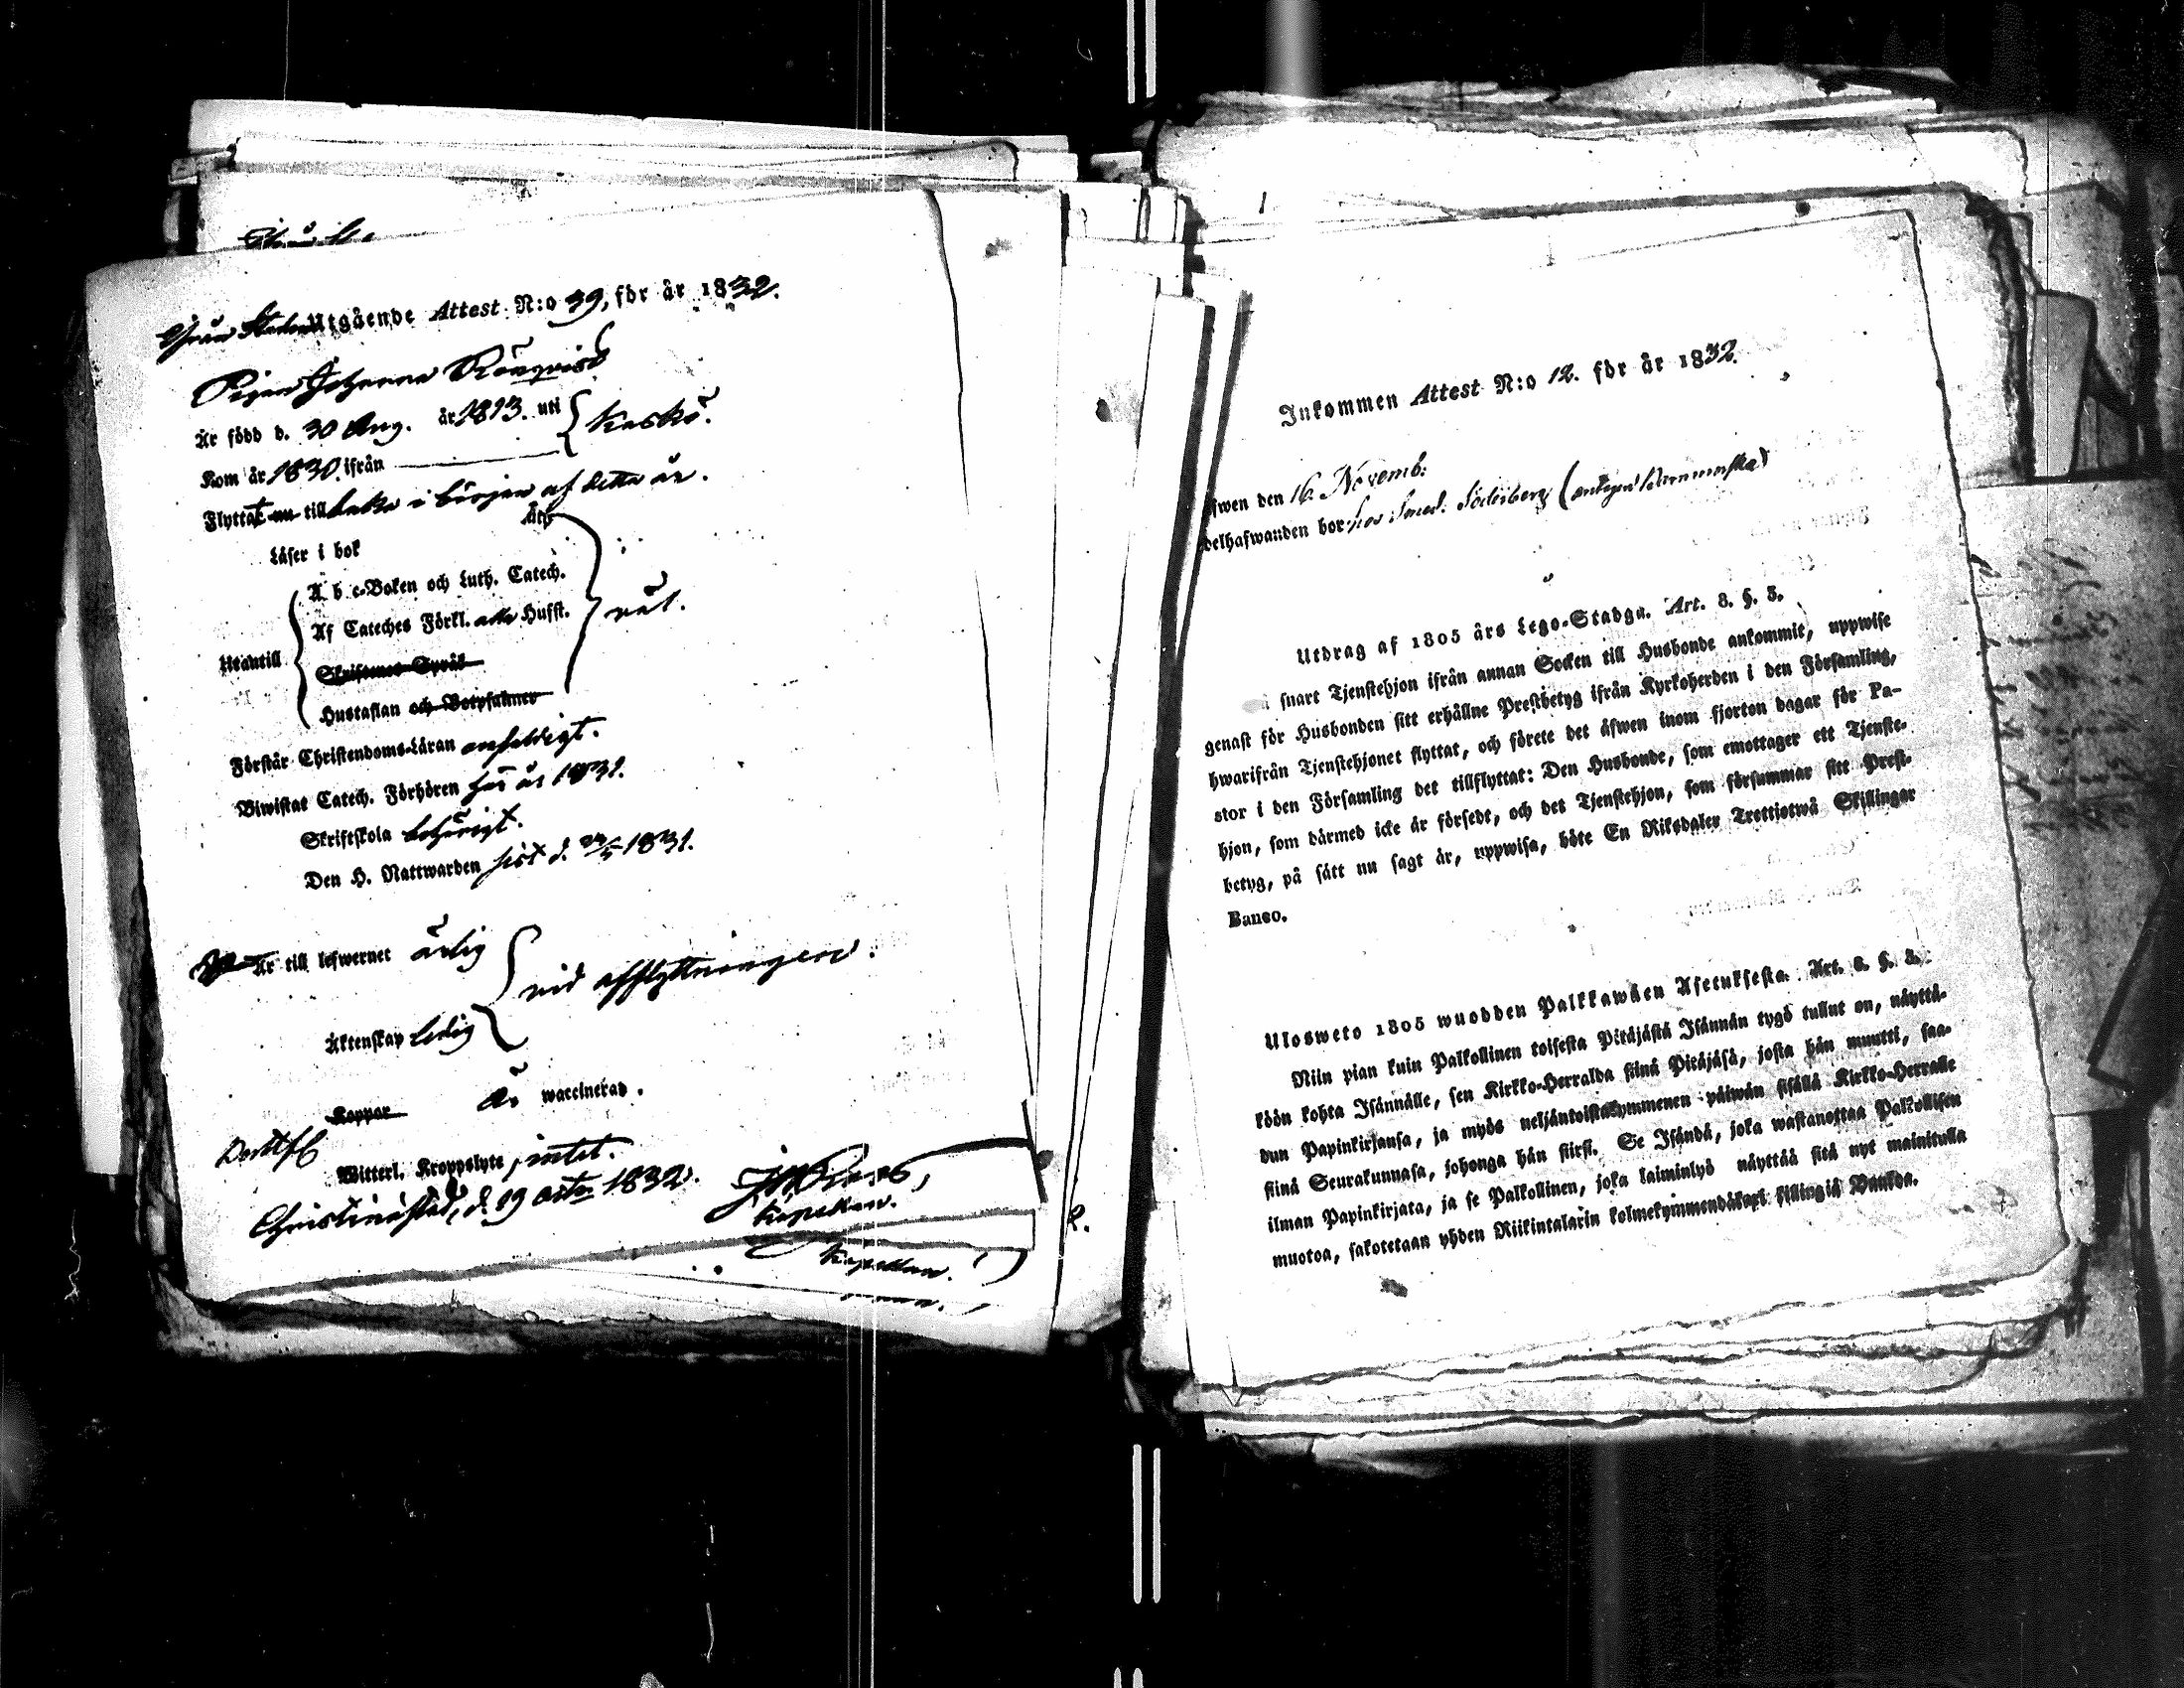 Ifrån Staden Utgående Attest N:o 39, för år 1832.
Pigan Johanna Rönqvist
Är född d. 30 Aug. år 1813. uti Kaskö.
Kom år 1830. ifrån
Flyttat nu till baka i början af detta år.
Läser i bok
A b c-Boken och Luth. Catech.
Af Cateches Förkl. Hufst. väl.
Utantill
Skriftenes Språk
Hustaflan och Botpsalmer
Förstår Christendoms-Läran enfaldigt.
Biwistat Catech. Förhören för år 1831.
Skriftskola behörigt.
Den H. Nattwarden sist d. 1831.
Är till lefwernet ärlig
vid afflyttningen.
Äktenskap ledig
Koppor är waccinerad.
Witterl. Kroppslyte, intet.
Christinæstad, d. 29 Octr 1832.
Kapellan.
Kapellan.
Inkommen Attest N:o 12. för år 1832.
fwen den 16 Novemb:
delhafwanden bor hos Smed. Söderberg
Utdrag af 1805 års Lego-Stadga. Art. 8. §. 3.
snart Tjenstehjon ifrån annan Socken till Husbonde ankommit, uppwise
genast för Husbonden sitt erhållne Prestbetyg ifrån Kyrkoherden i den Församling,
hwarifrån Tjenstehjonet flyttat, och förete det äfwen inom fjorton dagar för Pa-
stor i den Församling det tillflyttat: Den Husbonde, som emottager ett Tjenste-
hjon, som därmed icke är försedt, och det Tjenstehjon, som försummar sitt Prest-
betyg, på sätt nu sagt är, uppwisa, böte En Riksdaler Trettiotwå Skillingar
Banco.
Ulosweto 1805 wuodden Palkkawäen Asetuksesta. Art. 8. §. 3.
Niin pian kuin Palkollinen toisesta Pitäjästä Isännän tygö tullut on, näyttä-
köön kohta Isännälle, sen Kirkko-Herralda siinä Pitäjäsä, josta hän muutti, saa-
dun Papinkirjansa, ja myös neljäntoistakymmenen päiwän sisällä Kirkko-Herralle
siinä Seurakunnasa, johonga hän siirsi. Se Isändä, joka wastanottaa Palkollisen
ilman Papinkirjata, ja se Palkollinen, joka laiminlyö näyttää sitä nyt mainitulla
muotoa, sakotetaan yhden Riikintalarin kolmekymmendäkaxi skillingiä Bankoa.